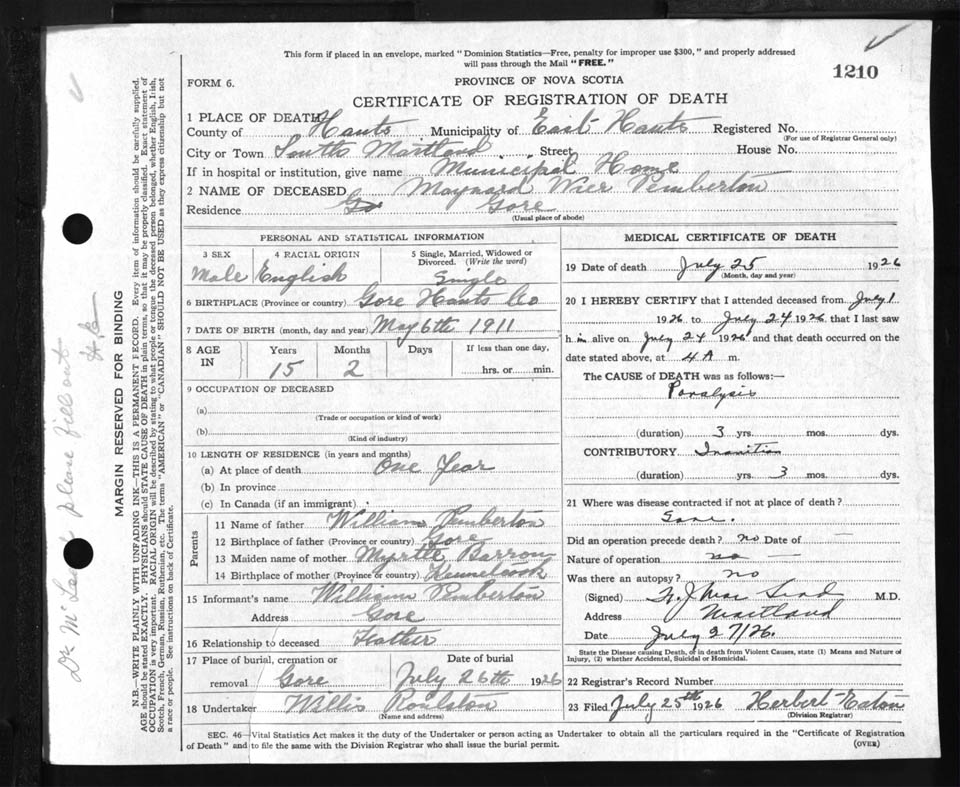 This form if placed in an envelope, marked "Dominion Statistics—Free, penalty for improper use $300," and properly addressed
will pass through the Mail "FREE."
1210
FORM 6.
PROVINCE OF NOVA SCOTIA
CERTIFICATE OF REGISTRATION OF DEATH
1 PLACE OF DEATH
County of Hants Municipality of East Hants Registered No.
(For use of Registrar General only)
City or Town South Maitland Street House No.
If in hospital or institution, give name Municipal Home
2 NAME OF DECEASED Maynard Wier Pemberton
Residence Gore
(Usual place of abode)
PERSONAL AND STATISTICAL INFORMATION
3 SEX 4 RACIAL ORIGIN 5 Single, Married, Widowed or
Divorced. (Write the word)
Male English Single
6 BIRTHPLACE (Province or country) Gore Hants Co
7 DATE OF BIRTH (month, day and year) May 6th 1911
8 AGE IN Years Months Days If less than one day,
15 2 hrs. or min.
9 OCCUPATION OF DECEASED
(a)
(Trade or occupation or kind of work)
(b)
(Kind of industry)
10 LENGTH OF RESIDENCE (in years and months)
(a) At place of death One Year
(b) In province
(c) In Canada (if an immigrant)
Parents
11 Name of father William Pemberton
12 Birthplace of father (Province or country) Gore
13 Maiden name of mother Myrtle Barron
14 Birthplace of mother (Province or country)
15 Informant's name William Pemberton
Address Gore
16 Relationship to deceased Father
17 Place of burial, cremation or Date of burial
removal Gore July 26th 1926
18 Undertaker Willis Roulston
(Name and address)
MEDICAL CERTIFICATE OF DEATH
19 Date of death July 25 1926
(Month, day and year)
20 I HEREBY CERTIFY that I attended deceased from July 1
1926 to July 24 1926 that I last saw
h im alive on July 24 1926 and that death occurred on the
date stated above, at 4 A m.
The CAUSE of DEATH was as follows:—
Paralysis
(duration) 3 yrs. mos. dys.
CONTRIBUTORY Inanition
(duration) yrs. 3 mos. dys.
21 Where was disease contracted if not at place of death?
Gore.
Did an operation precede death? no Date of —
Nature of operation no —
Was there an autopsy? no
(Signed) M.D.
Address Maitland
Date July 27/26.
State the Disease causing Death, or in death from Violent Causes, state (1) Means and Nature of
Injury, (2) whether Accidental, Suicidal or Homicidal.
22 Registrar's Record Number
23 Filed July 25th 1926 Herbert Eaton
(Division Registrar)
SEC. 46—Vital Statistics Act makes it the duty of the Undertaker or person acting as Undertaker to obtain all the particulars required in the "Certificate of Registration
of Death" and to file the same with the Division Registrar who shall issue the burial permit.
(OVER)
MARGIN RESERVED FOR BINDING
N.B.—WRITE PLAINLY WITH UNFADING INK—THIS IS A PERMANENT RECORD. Every item of information should be carefully supplied.
AGE should be stated EXACTLY. PHYSICIANS should STATE CAUSE OF DEATH in plain terms, so that it may be properly classified. Exact statement of
OCCUPATION is very important. RACIAL ORIGIN will be described by stating to what people or tongue the deceased person belonged, whether English, Irish,
Scotch, French, German, Russian, Ruthenian, etc. The terms "AMERICAN" or "CANADIAN" SHOULD NOT BE USED as they express citizenship but not
a race or people. See instructions on back of Certificate.
please fill out